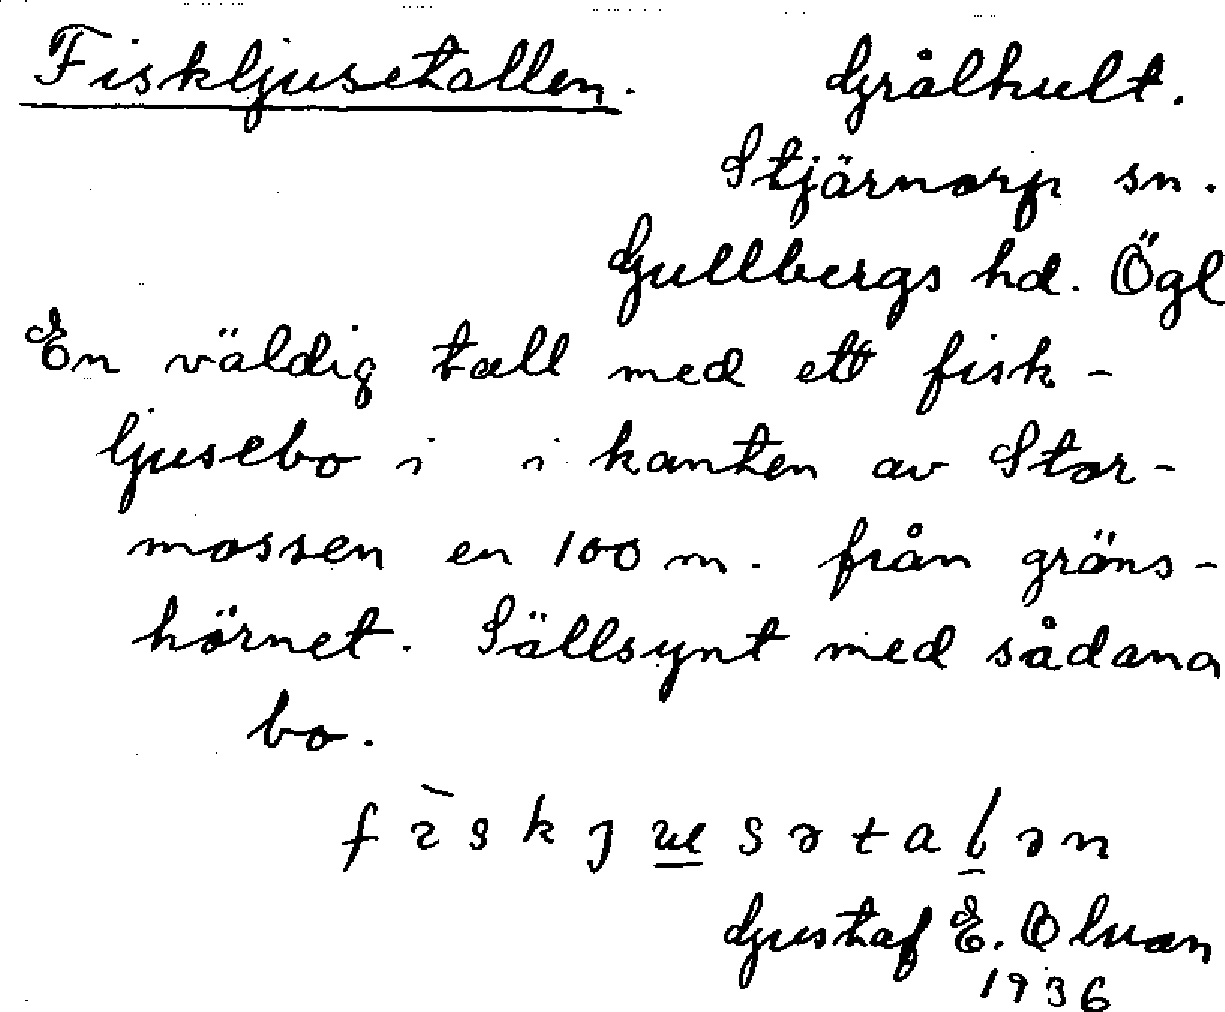 Fiskljusetallen. Grålhult.
Stjärnorp sn.
Gullbergs hd. Ögl
En väldig tall med ett fisk-
ljusebo i i kanten av Stor-
mossen en 100 m. från gräns-
hörnet. Sällsynt med sådana
bo.
Gustaf E.
1936